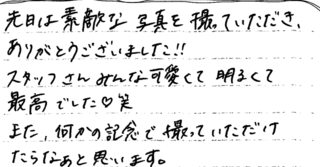 先日は素敵な写真を撮っていただき、
ありがとうございました!!
スタッフさんみんな可愛くて明るくて
最高でした♡笑
また、何かの記念で撮っていただけ
たらなあと思います。